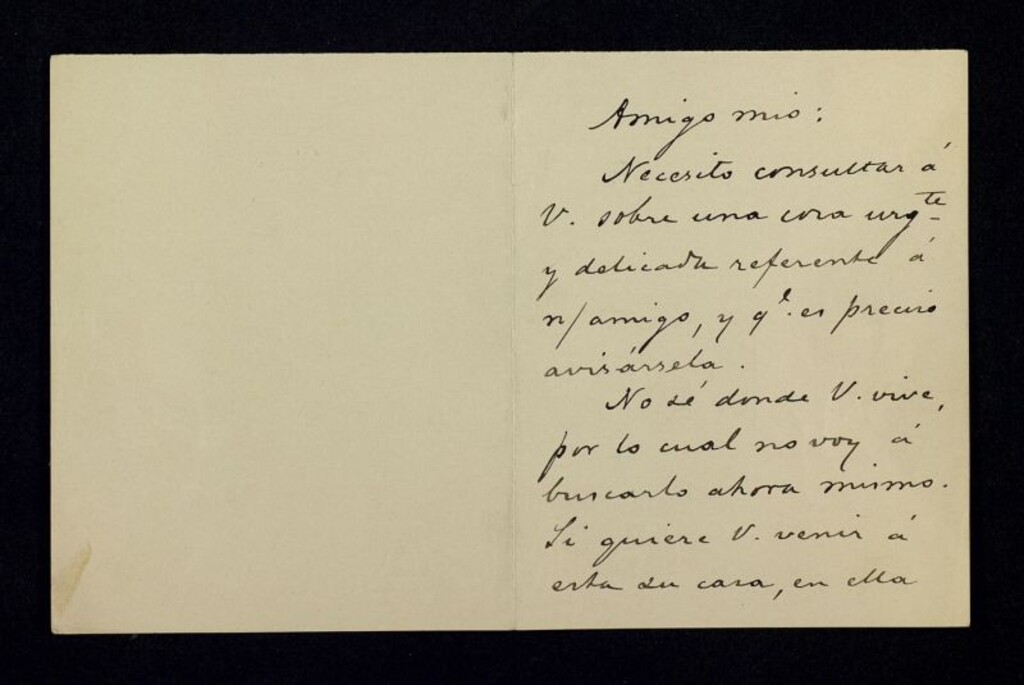 Amigo mio:
Necesito consultar á
V. sobre una cosa urgte
y delicada referente á
n/amigo, y qe. es preciso
avisársela.
No sé donde V. vive,
por lo cual no voy á
buscarlo ahora mismo.
Si quiere V. venir á
esta su casa, en ella